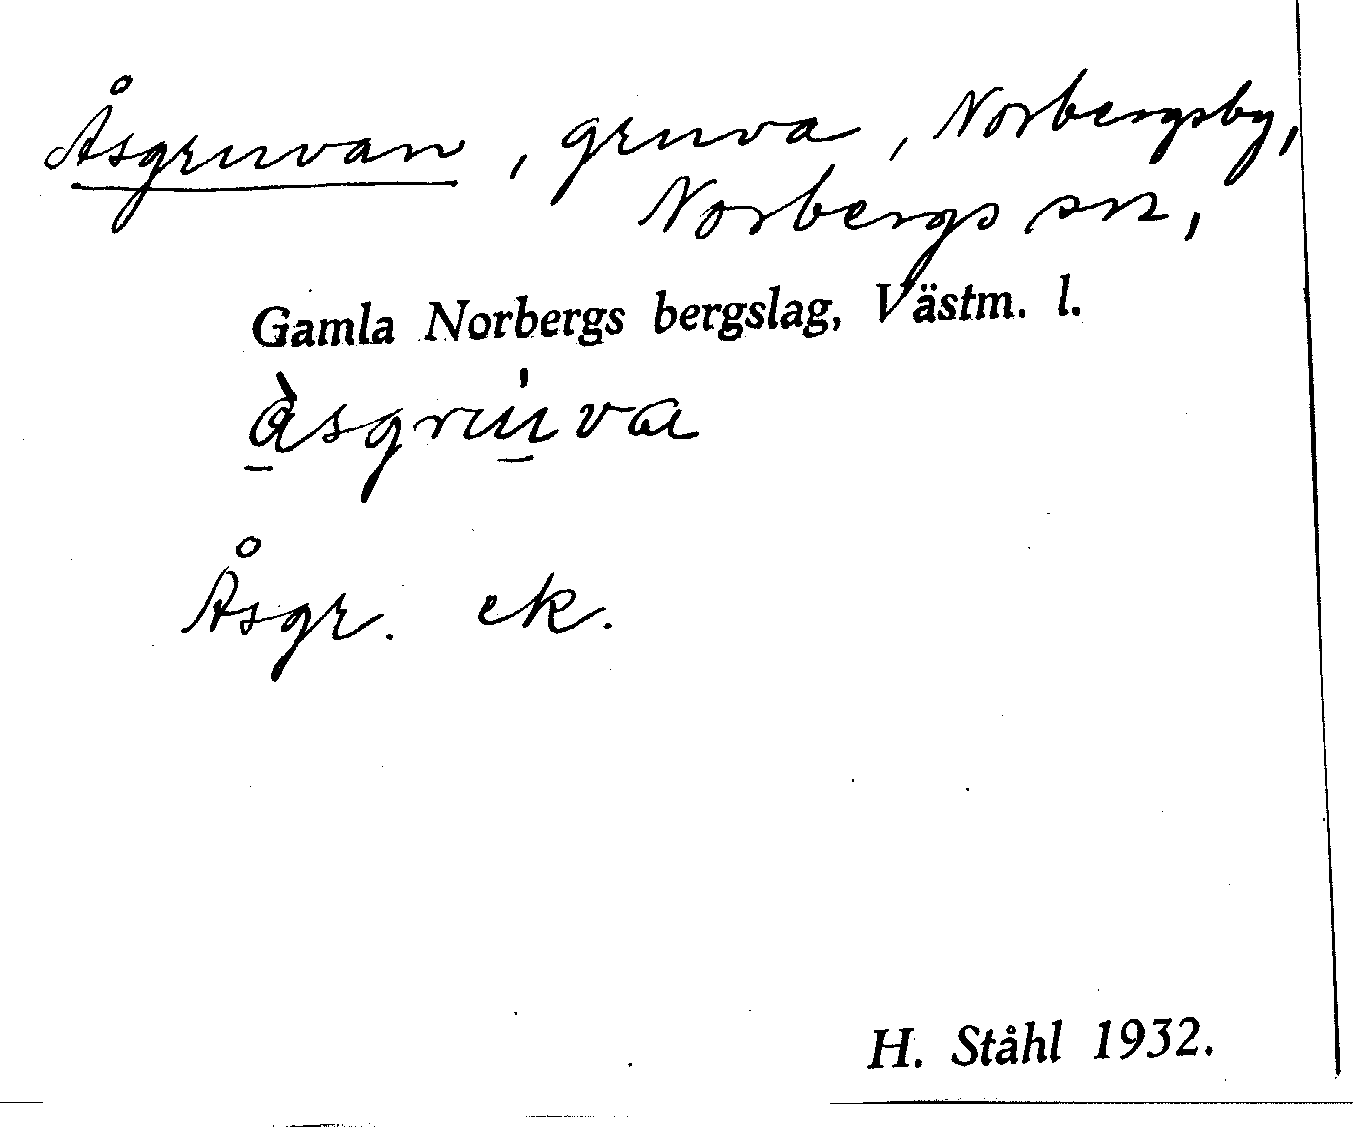 Åsgruvan, gruva, Norbergsby,
Norbergs sn,
Gamla Norbergs bergslag, Västm. l.
àsgru̍va
Åsgr. ek.
H. Ståhl 1932.